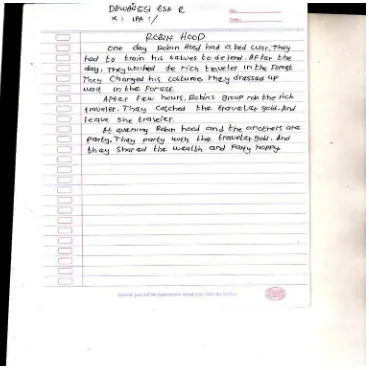 DEWANGGI ESA R
X1 IPA 1 /
No.
Date:
ROBIN HOOD
One day Robin Hood had a bed war. They
had to train his salves to defend. After the
day. They waited de rich traveler in the Forest
They Changed his costume. They dressed up
wait in the Forest.
After Few hours, Robins group rob the rich
traveler. They catched the traveler gold. And
leave the traveler.
At evening Robin hood and the anothers are
Party. They party with the traveler gold. And
they shared the wealth and Party happy.